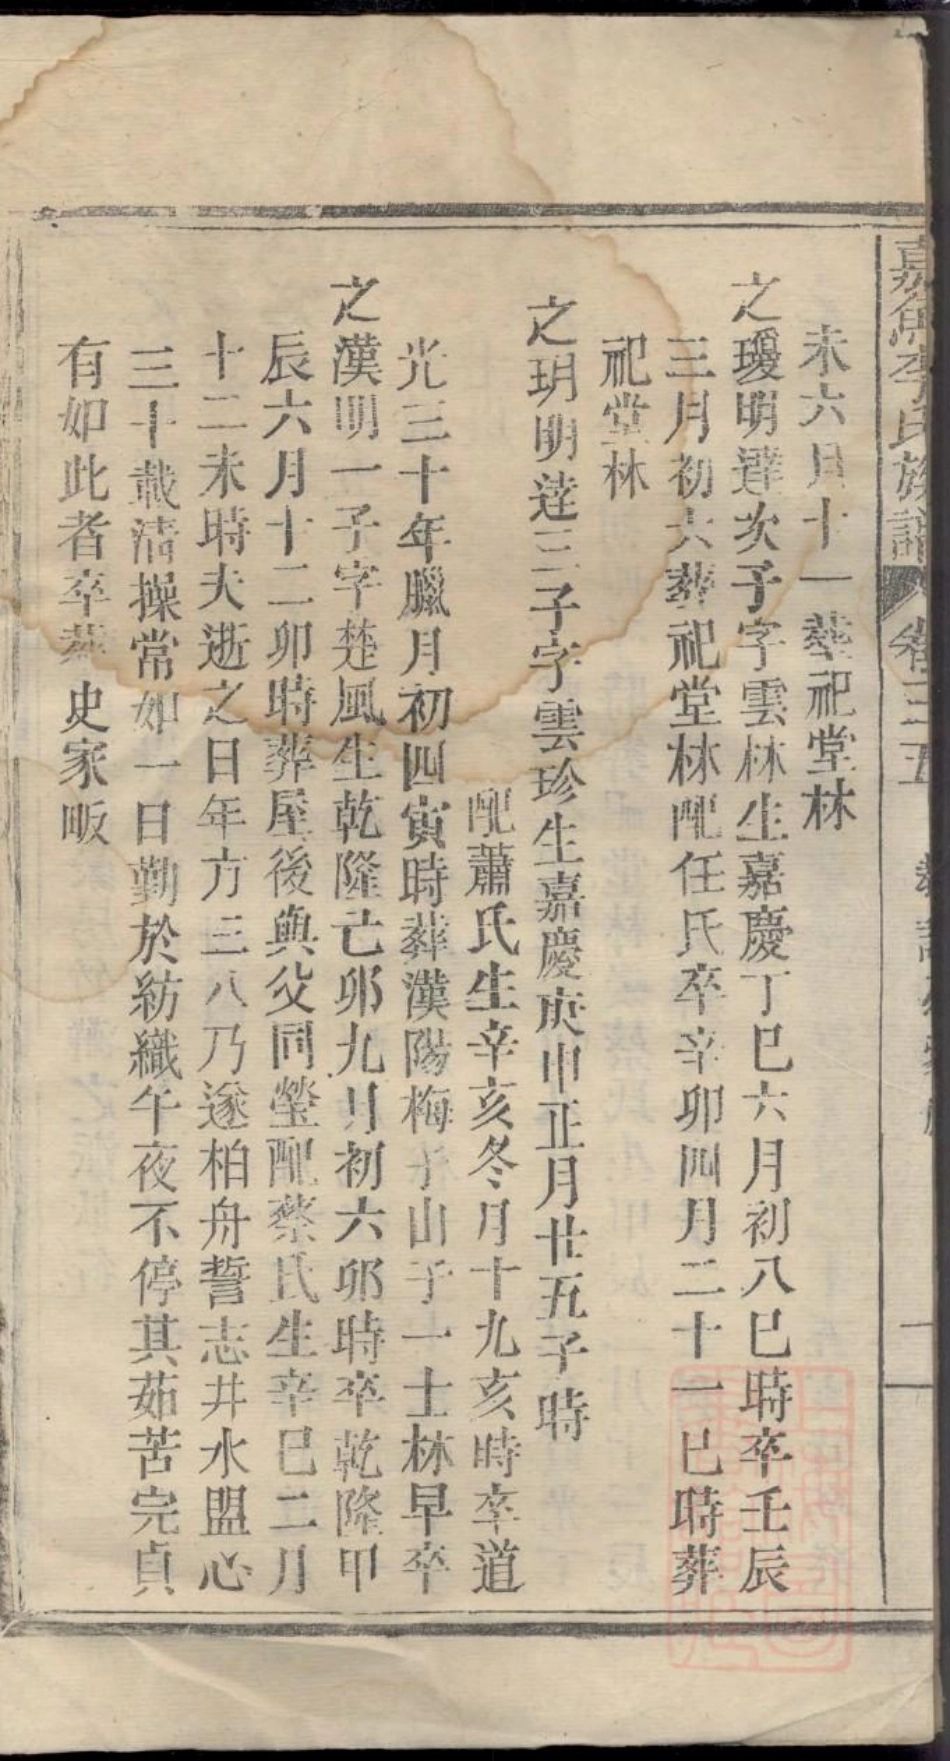 嘉魚李氏族譜 卷三五
未六月十一葬祀堂林
之瓊明達次子字雲林生嘉慶丁巳六月初八巳時卒壬辰
三月初六葬祀堂林配任氏卒辛卯四月二十一巳時葬
祀堂林
之玥明達三子字雲珍生嘉慶庚申正月廿五子時
配蕭氏生辛亥冬月十九亥時卒道
光三十年臘月初四寅時葬漢陽梅子山子一士林早卒
之漢明一子字楚風生乾隆己卯九月初六卯時卒乾隆甲
辰六月十二卯時葬屋後與父同塋配蔡氏生辛巳二月
十二未時夫逝之日年方三八乃遂柏舟誓志井水盟心
三十載清操常如一日勤於紡織午夜不停其茹苦完貞
有如此者卒葬史家畈